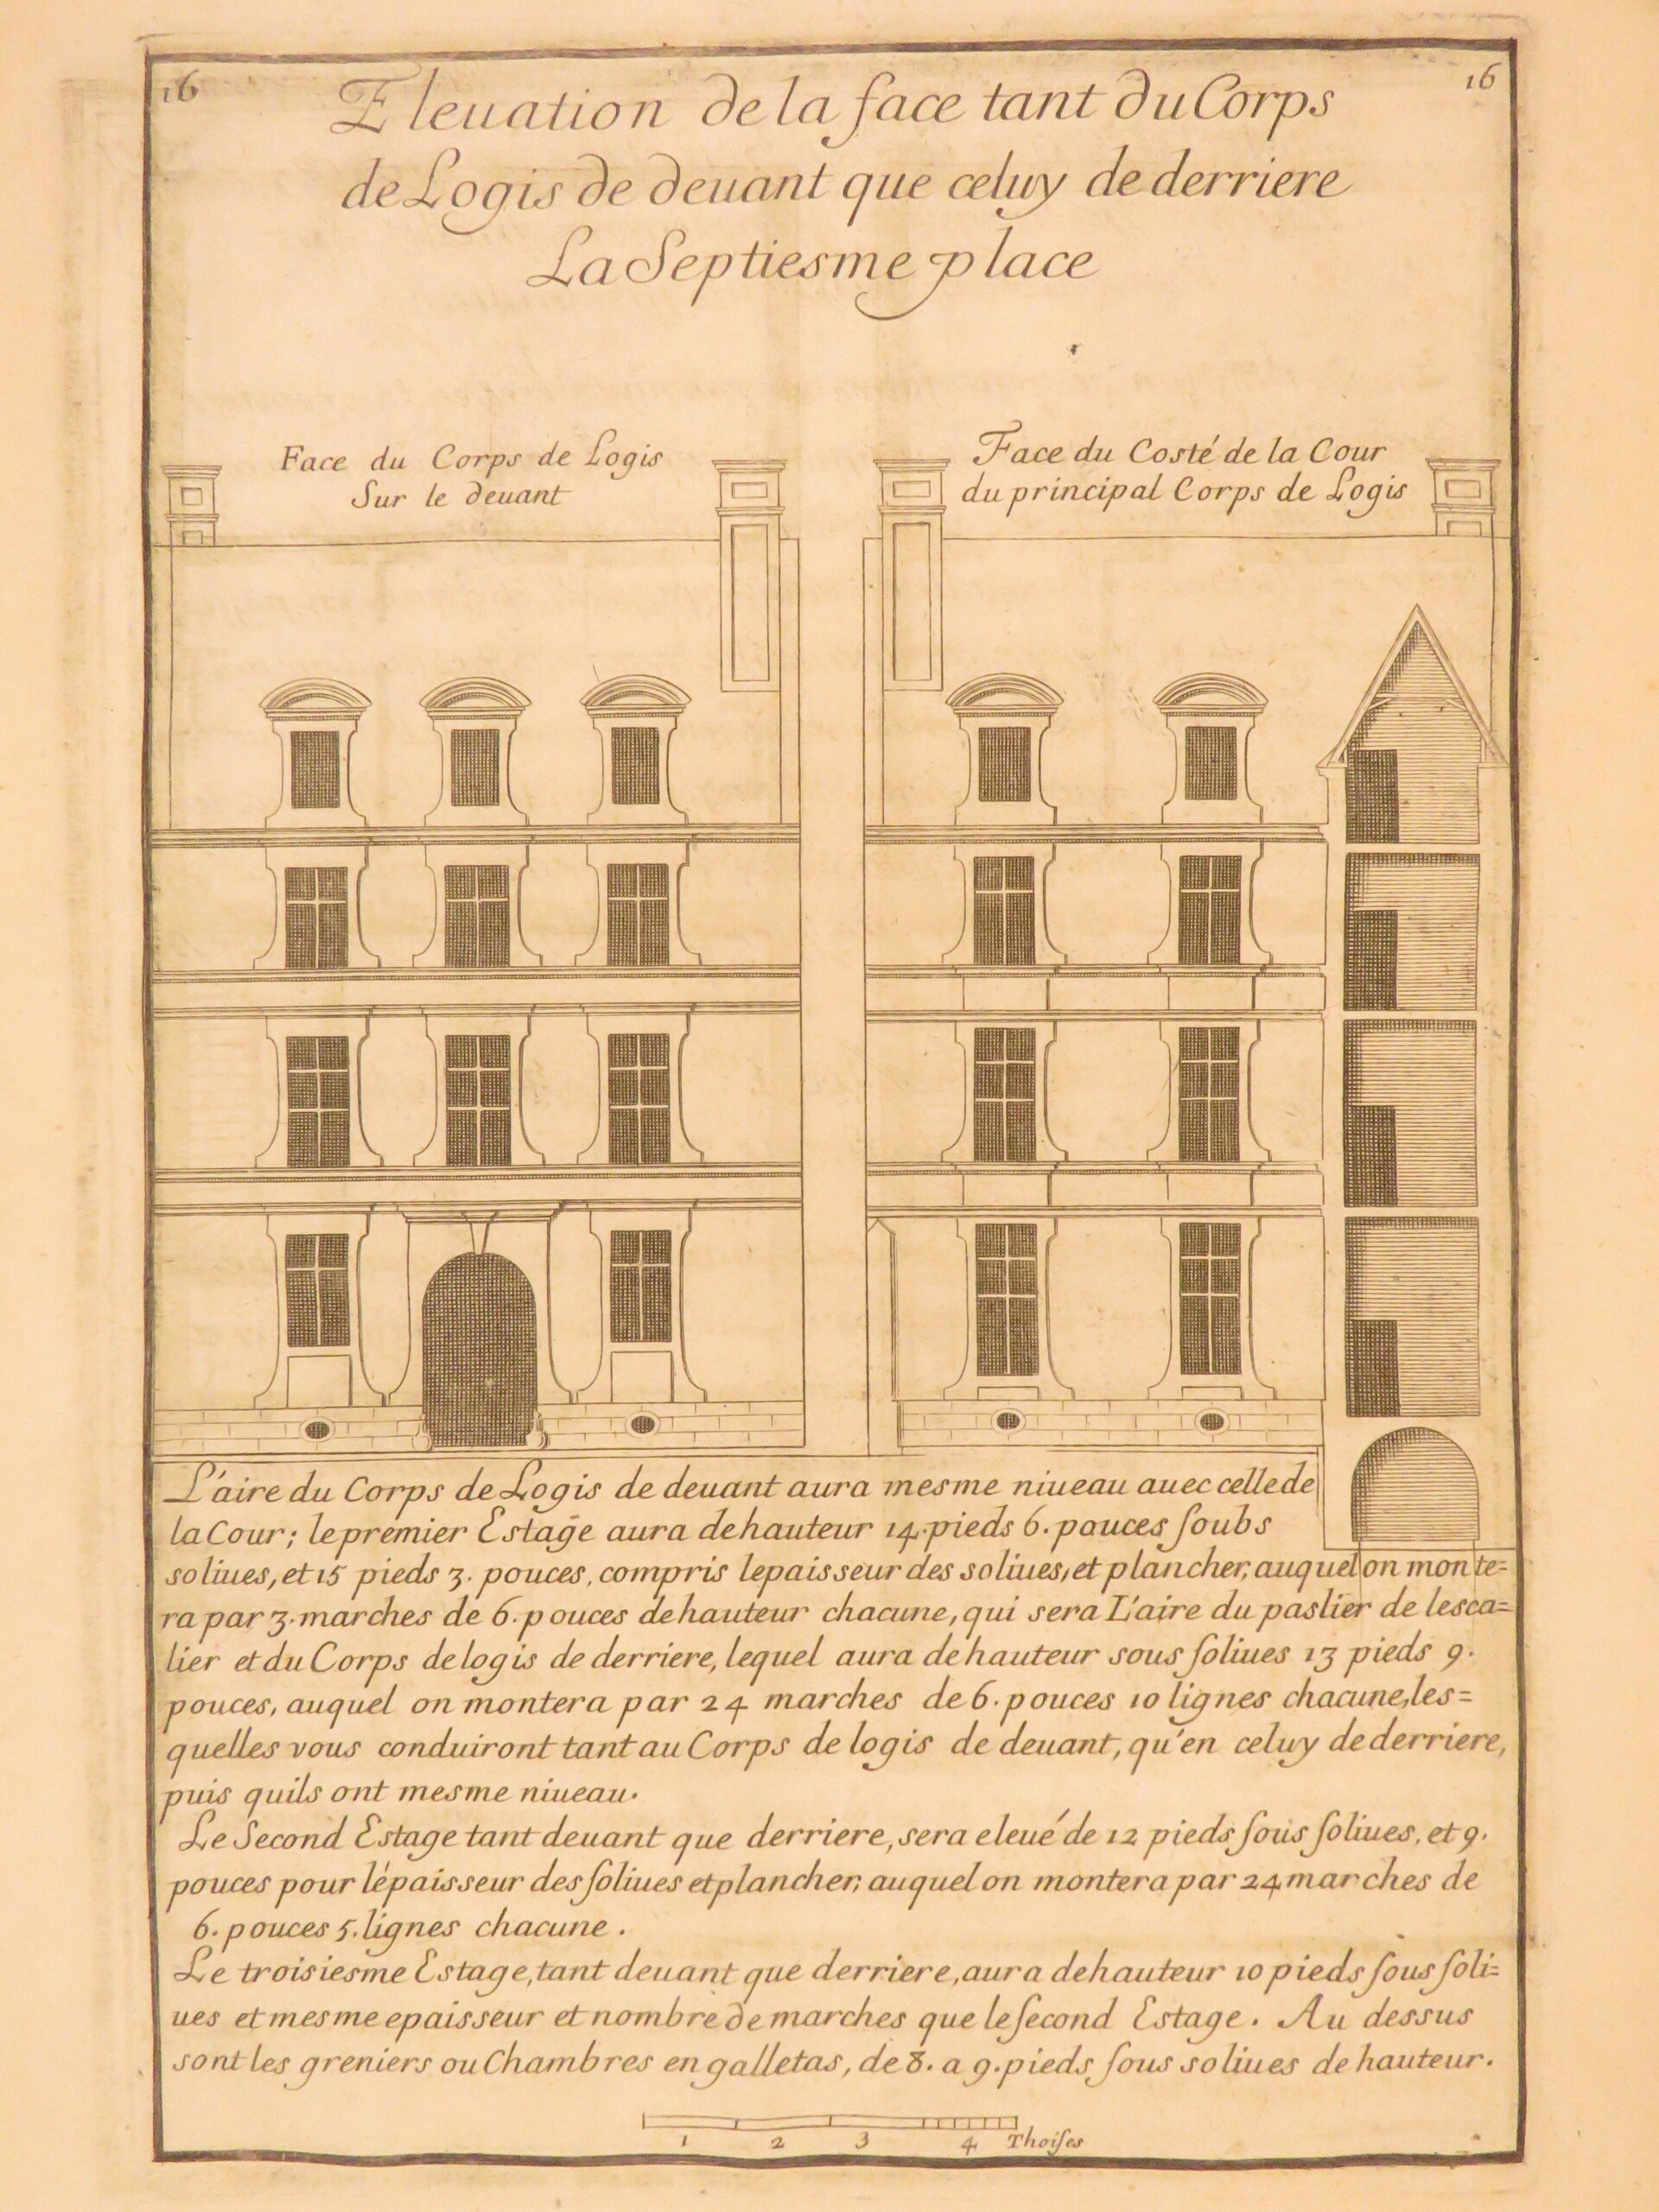 16
16
Eleuation de la face tant du Corps
de Logis de deuant que celuy de derriere
La Septiesme place
Face du Corps de Logis
Sur le deuant
Face du Costé de la Cour
du principal Corps de Logis
L'aire du Corps de Logis de deuant aura mesme niueau auec celle de
la Cour; le premier Estage aura de hauteur 14. pieds 6. pouces ſoubs
soliues, et 15 pieds 3. pouces, compris lepaisseur des soliues, et plancher, auquel on monte=
ra par 3. marches de 6. pouces de hauteur chacune, qui sera L'aire du paslier de lesca=
lier et du Corps de logis de derriere, lequel aura de hauteur sous ſoliues 13 pieds 9.
pouces, auquel on montera par 24 marches de 6. pouces 10 lignes chacune, les=
quelles vous conduiront tant au Corps de logis de deuant, qu'en celuy de derriere,
puis quils ont mesme niueau.
Le Second Estage tant deuant que derriere, sera eleué de 12 pieds ſous ſoliues, et 9.
pouces pour l'épaisseur des ſoliues et plancher, auquel on montera par 24 marches de
6. pouces 5. lignes chacune.
Le troisiesme Estage, tant deuant que derriere, aura de hauteur 10 pieds ſous ſoli=
ues et mesme epaisseur et nombre de marches que le ſecond Estage. Au dessus
sont les greniers ou Chambres en galletas, de 8. a 9. pieds ſous soliues de hauteur.
1 2 3 4 Thoiſes